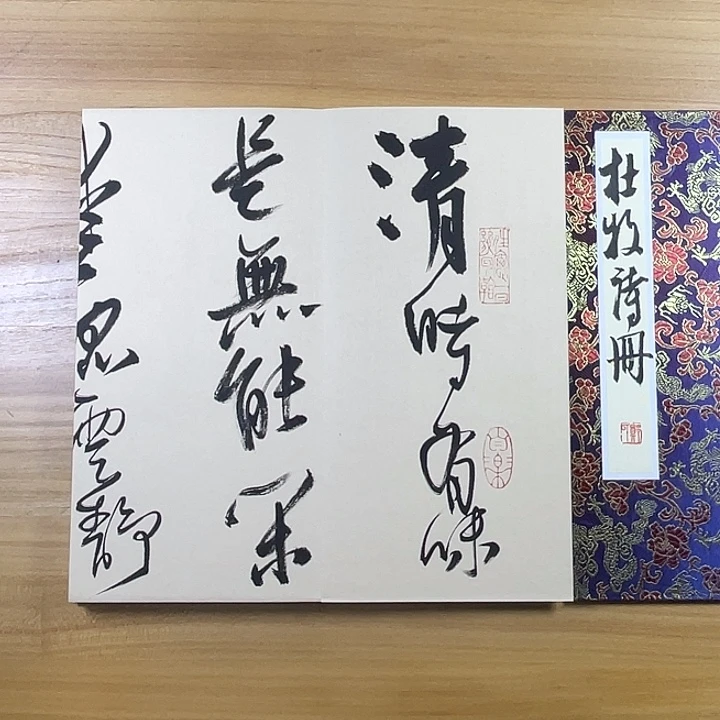 杜牧詩冊
清時有味
是無能閑
愛孤雲靜